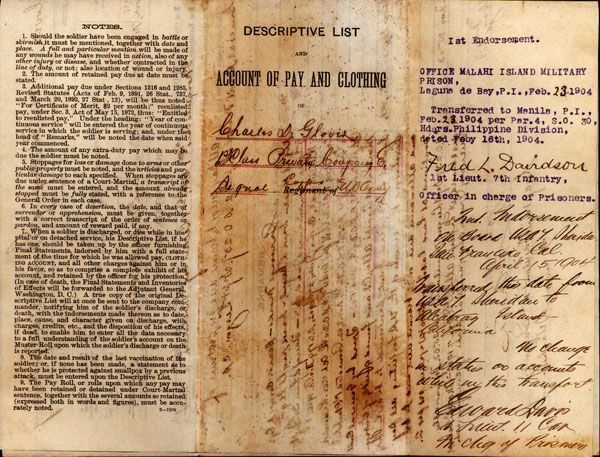 NOTES.
1. Should the soldier have been engaged in battle or
skirmish it must be mentioned, together with date and
place. A full and particular mention will be made of
any wounds he may have received in action, also of any
other injury or disease, and whether contracted in the
line of duty, or not; also location of wound or injury.
2. The amount of retained pay due at date must be
stated.
3. Additional pay due under Sections 1216 and 1285,
Revised Statutes (Acts of Feb. 9, 1891, 26 Stat., 737,
and March 29, 1892, 27 Stat., 12), will be thus noted:
"For Certificate of Merit, $2 per month;" reenlisted
pay, under Sec. 3, Act of May 15, 1872, thus: "Entitled
to reenlisted pay." Under the heading "Year of con-
tinuous service" will be entered the year of continuous
service in which the soldier is serving; and, under the
head of "Remarks," will be noted the date when said
year commenced.
4. The amount of any extra-duty pay which may be
due the soldier must be noted.
5. Stoppages for loss or damage done to arms or other
public property must be noted, and the articles and par-
ticular damage to each specified. When stoppages are
due under sentence of Court-Martial, a transcript of
the same must be entered, and the amount already
stopped must be fully stated, with a reference to the
General Order in each case.
6. In every case of desertion, the date, and that of
surrender or apprehension, must be given, together
with a correct transcript of the order of sentence or
pardon, and amount of reward paid, if any.
7. When a soldier is discharged, or dies while in hos-
pital or on detached service, his Descriptive List, if he
has one, should be taken up by the officer furnishing
Final Statements, indorsed by him with a full state-
ment of the time for which he was allowed pay, CLOTH-
ING ACCOUNT, and all other charges against him or in
his favor, so as to comprise a complete exhibit of his
account, and retained by the officer for his protection.
(In case of death, the Final Statements and Inventory
of Effects will be forwarded to the Adjutant General,
Washington, D. C.) A true copy of the original De-
scriptive List will at once be sent to the company com-
mander, notifying him of the soldier's discharge, or
death, with the indorsements made thereon as to date,
place, cause, and character given on discharge, with
charges, credits, etc., and the disposition of his effects,
if dead, to enable him to enter all the data necessary
to a full understanding of the soldier's account on the
Muster Roll upon which the soldier's discharge or death
is reported.
8. The date and result of the last vaccination of the
soldier; or, if none has been made, a statement as to
whether he is protected against smallpox by a previous
attack, must be entered upon the Descriptive List.
9. The Pay Roll, or rolls upon which any pay may
have been retained or detained under Court-Martial
sentence, together with the several amounts so retained
(expressed both in words and figures), must be accu-
rately noted.
DESCRIPTIVE LIST
AND
ACCOUNT OF PAY AND CLOTHING
OF
Charles D. Glover
1st Class Private Company E
Signal Corps U.S. Army
Regiment of
1st Endorsement.
OFFICE MALAHI ISLAND MILITARY
PRISON,
Laguna de Bay, P.I., Feb. 23, 1904
Transferred to Manila, P.I.,
Feb. 23, 1904 per Par. 4, S.O. 30,
Hdqrs. Philippine Division
dated Feby 18th, 1904.
Fred L. Davidson
1st Lieut. 7th Infantry
Officer in charge of Prisoners.
Indorsement
On Board
San Francisco Cal
April 15, 1904
Transferred this date from
Sheridan to
Alcatraz Island
California
No change
in status or accounts
while on this transport
Edward
11 Cav
in chg of Prisoners